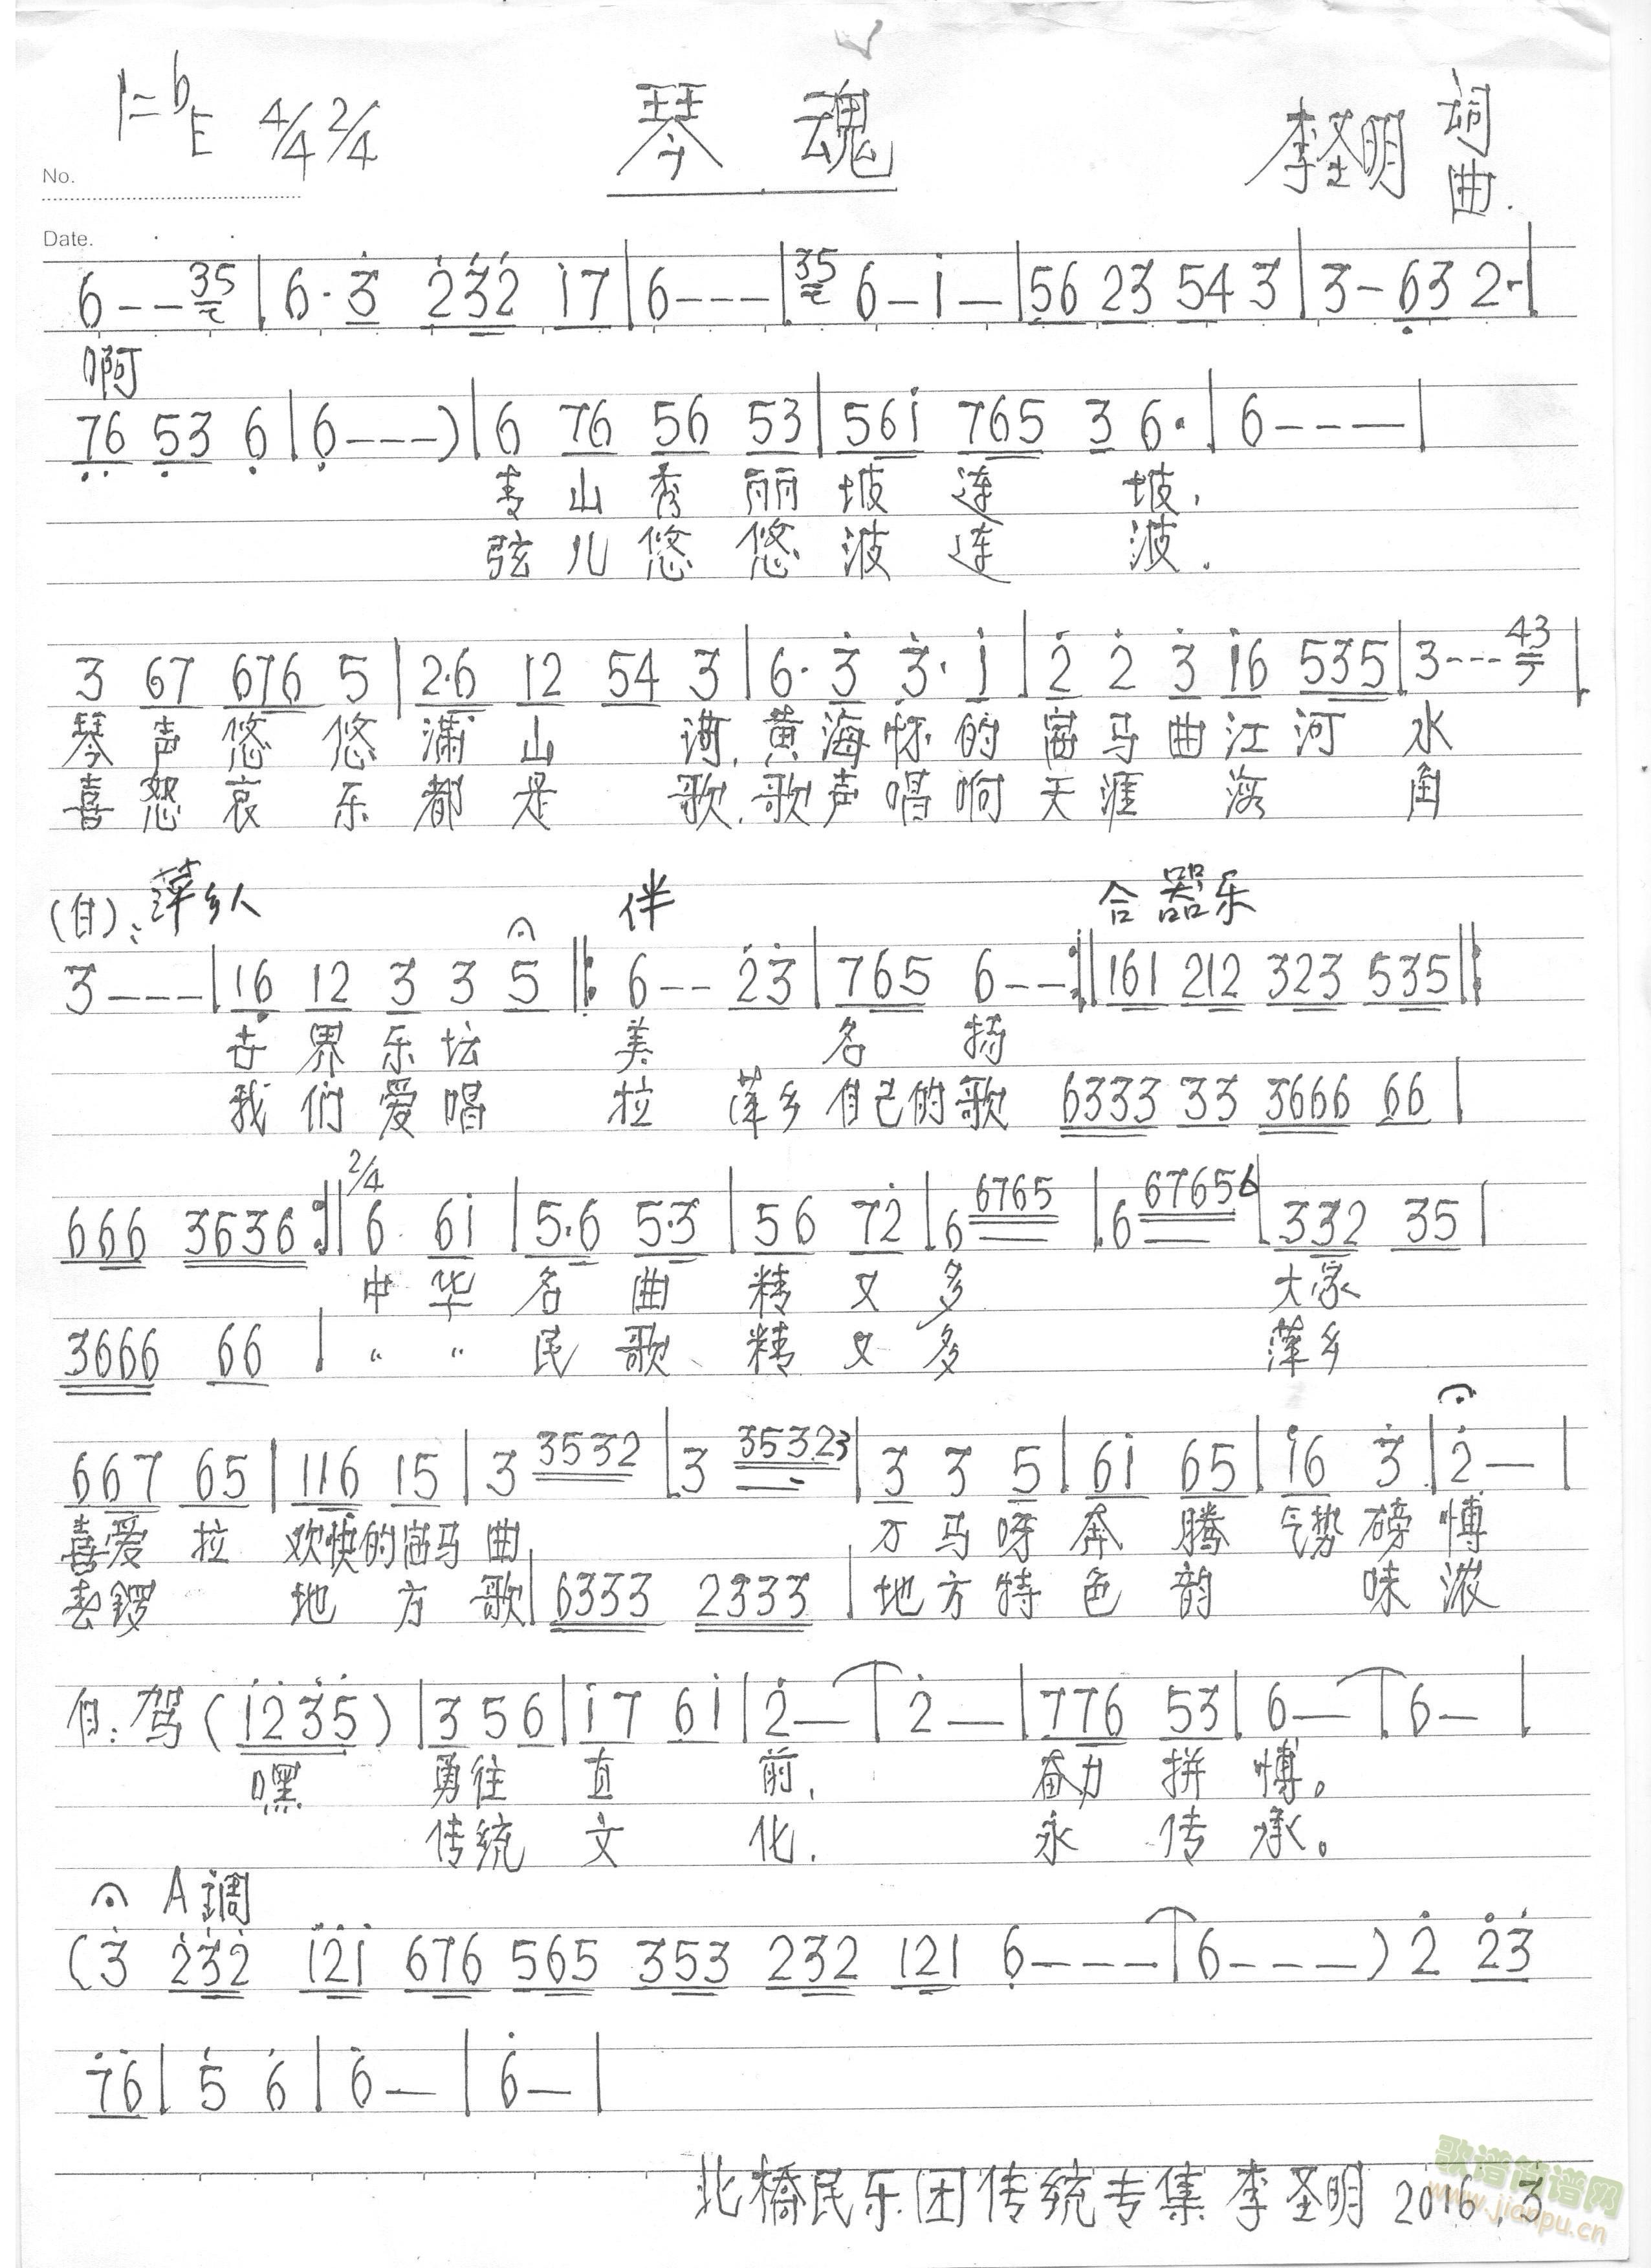 1=bE 4/4 2/4 琴魂 李圣明 词曲.
No.
Date.
6--35|6·3 232 17|6---|35 6-1-|56 23 54 3|3-63 2-|
啊
76 53 6|6---)|6 76 56 53|561 765 3 6·|6---|
青山秀丽坡连坡.
弦儿悠悠波连波.
3 67 676 5|2·6 12 54 3|6·3 3·1|2 2 3 16 535|3---43|
琴声悠悠满山 黄海怀的 马曲江河水
喜怒哀乐都是歌.歌声唱响天涯 角
(白):萍乡人 伴 合器乐
3---|16 12 3 3 5‖:6--23|765 6--:‖161 212 323 535‖:
世界乐坛 美名扬
我们爱唱 拉萍乡自己的歌 6333 33 3666 66|
666 3636:‖2/4 6 61|5·6 5·3|56 72|6 6765|6 67656|332 35|
中华名曲精又多 大家
3666 66|〃 〃民歌、精又多 萍乡
667 65|116 15|3 3532|3 35323|3 3 5|61 65|16 3|2-|
喜爱拉 欢快的 马曲 万马呀奔腾 气势磅愽
锣 地方歌|6333 2333|地方特色韵 味浓
白:驾(1235)|3 5 6|17 61|2-|2-|776 53|6-|6-|
嘿 勇往直前. 奋力拼愽。
传统文化. 永传承。
A調
(3 232 121 676 565 353 232 121 6---|6---)2 23
76|5 6|6-|6-|
北橋民乐团传统专集李圣明 2016.3
歌谱简谱网
www.jianpu.cn